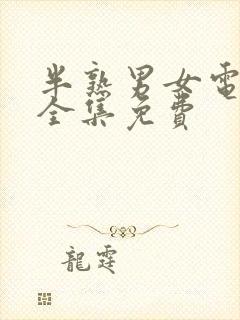 半熟男女電
全集免費
龍霆